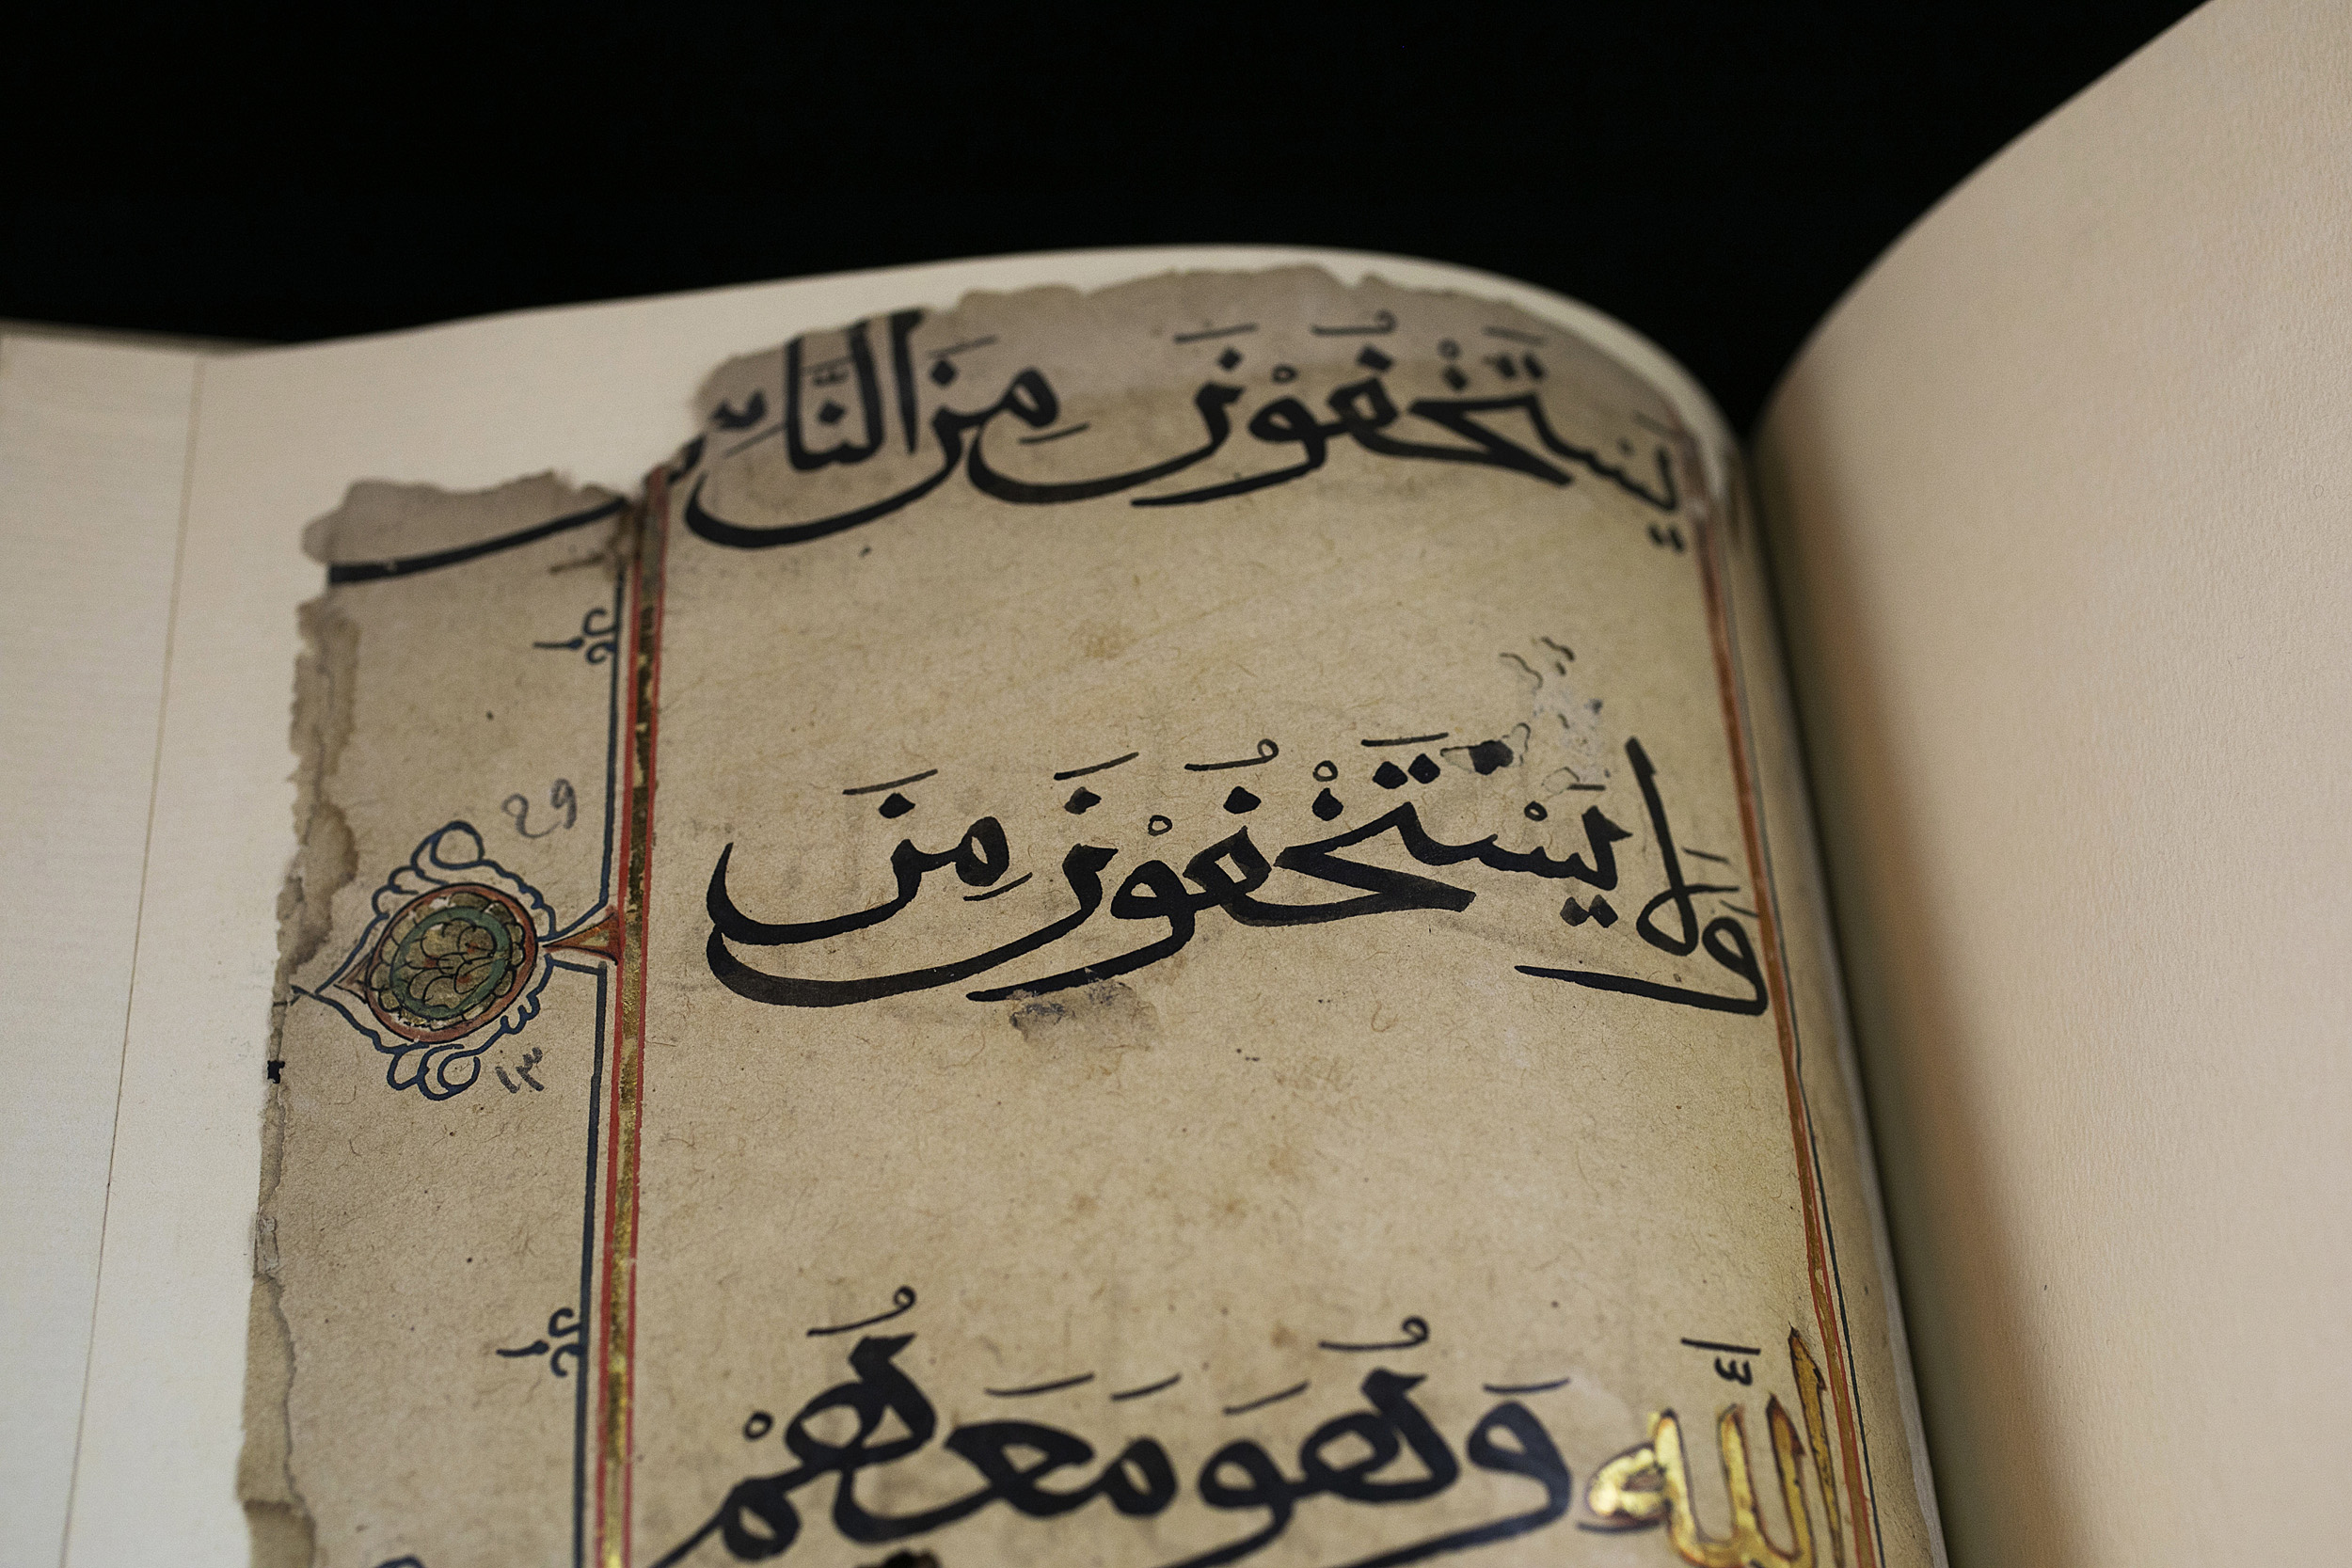 يَسْتَخْفُوْنَ مِنَ النَّاسِ
وَلَا يَسْتَخْفُوْنَ مِنَ
اللّٰهِ وَهُوَ مَعَهُمْ